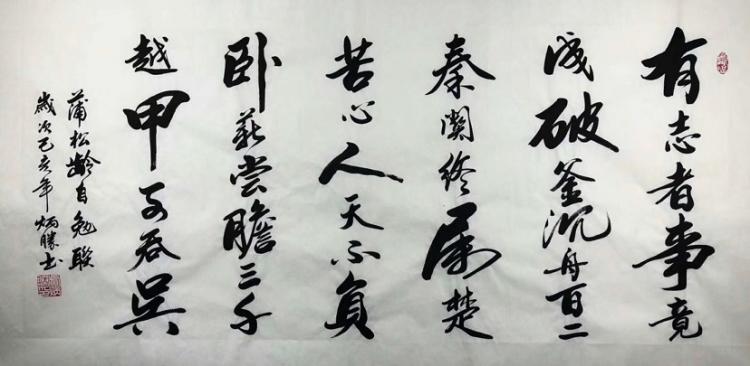 有志者事竟
成破釜沉舟百二
秦関终属楚
苦心人天不負
卧薪尝膽三千
越甲可吞吴
蒲松龄自勉联
歲次己亥年炳勝书